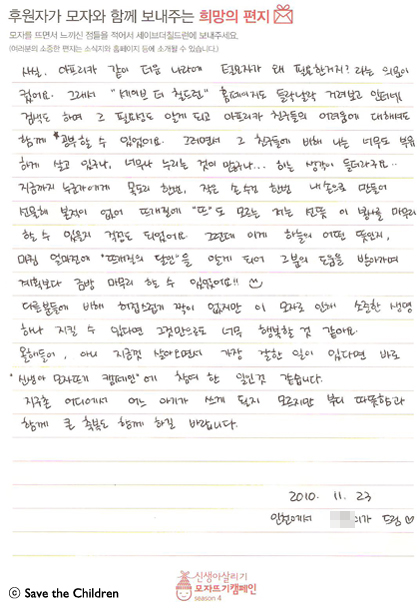 후원자가 모자와 함께 보내주는 희망의 편지
모자를 뜨면서 느끼신 점들을 적어서 세이브더칠드런에 보내주세요.
(여러분의 소중한 편지는 소식지와 홈페이지 등에 소개될 수 있습니다.)
사실, 아프리카 같이 더운 나라에 털모자가 왜 필요한거지? 라는 의문이
컸어요. 그래서 "세이브 더 칠드런" 홈페이지도 들락날락 거려보고 인터넷
검색도 하며 그 필요성도 알게 되고 아프리카 친구들의 어려움에 대해서도
함께 공부할 수 있었어요. 그러면서 그 친구들에 비해 나는 너무도 부유
하게 살고 있구나, 너무나 누리는 것이 많구나... 하는 생각이 들더라구요..
지금까지 누군가에게 목도리 한번, 작은 손수건 한번 내 손으로 만들어
선물해 본적이 없어 뜨개질에 "뜨"도 모르는 저는 선뜻 이 봉사를 마무리
할 수 있을지 걱정도 되었어요. 그런데 이게 하늘의 어떤 뜻인지,
마침 얼마전에 "뜨개질의 달인"을 알게 되어 그분의 도움을 받아가며
계획보다 금방 마무리 할 수 있었어요!!
다른분들에 비해 허접스럽게 짝이 없지만 이 모자로 인해 소중한 생명
하나 지킬 수 있다면 그것만으로도 너무 행복할 것 같아요.
올해들어, 아니 지금껏 살아오면서 가장 잘한 일이 있다면 바로
"신생아 모자뜨기 캠페인"에 참여 한 일인것 같습니다.
지구촌 어디에서 어느 아기가 쓰게 될지 모르지만 부디 따뜻함과
함께 큰 축복도 함께 하길 바랍니다.
2010. 11. 23
인천에서 이가 드림 ♡
신생아살리기
모자뜨기캠페인
season 4
ⓒ Save the Children